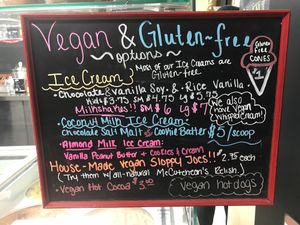 Vegan & Gluten-free
options
Most of our Ice Creams are
Gluten-free
Gluten
Free
CONES
Ice Cream:
• Chocolate & Vanilla Soy • & • Rice Vanilla •
Kids $3.75 SM $4.75 LG $5.75
Milkshakes!! SM $6 Lg $7
We also
have Vegan
Whipped Cream!
• Coconut Milk Ice Cream:
Chocolate Salt Malt or Cookie Batter $5/scoop
• Almond Milk Ice Cream:
Vanilla Peanut Butter & Cookies & Cream
House-Made Vegan Sloppy Joes!! 2.75 each
(Try them w/ all-natural McCutcheon's Relish!)
• Vegan Hot Cocoa
Vegan hot dogs